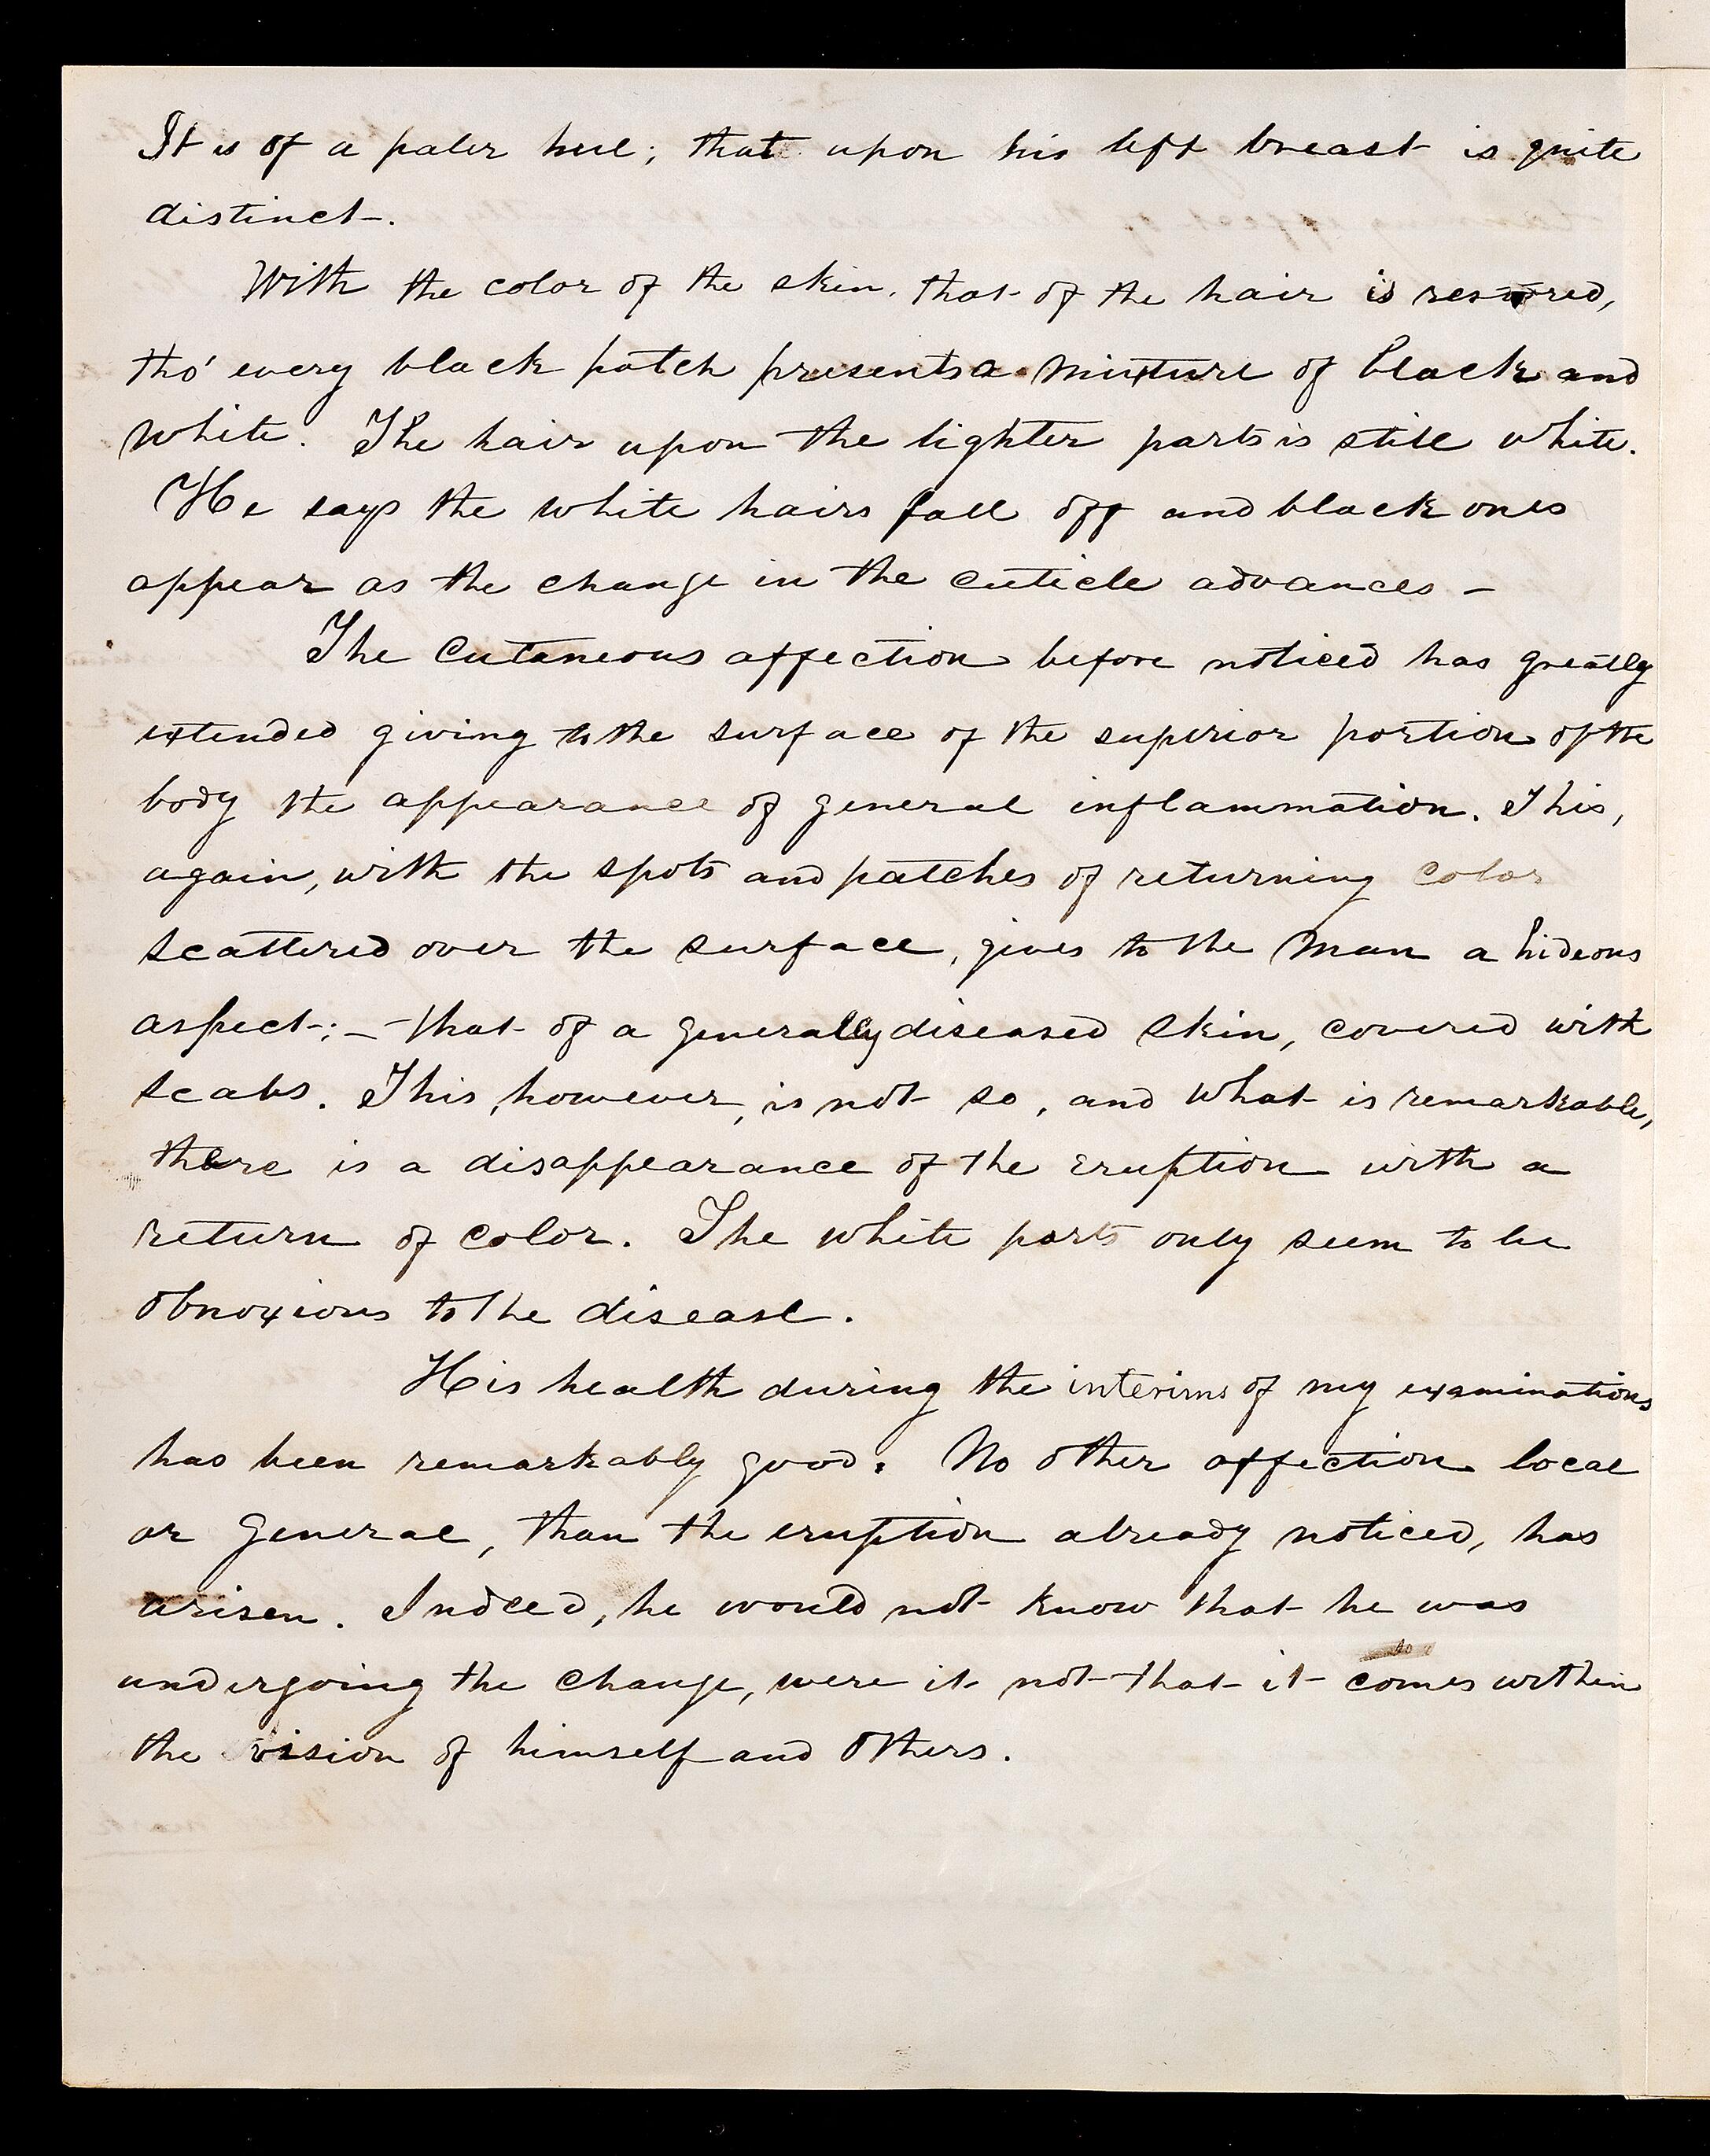 It is of a paler hue; that upon his left breast is quite
distinct.
With the color of the skin, that of the hair is restored,
tho' every black patch presents a mixture of black and
white. The hair upon the lighter parts is still white.
He says the white hairs fall off and black ones
appear as the change in the cuticle advances –
The Cutaneous affection before noticed has greatly
extended giving to the surface of the superior portion of the
body the appearance of general inflammation. This,
again, with the spots and patches of returning color
scattered over the surface, gives to the man a hideous
aspect; – that of a generally diseased skin, covered with
scabs. This, however, is not so, and what is remarkable,
there is a disappearance of the eruption with a
return of color. The white parts only seem to be
obnoxious to the disease.
His health during the interims of my examinations
has been remarkably good. No other affection local
or general, than the eruption already noticed, has
arisen. Indeed, he would not know that he was
undergoing the change, were it not that it comes within
the vision of himself and others.